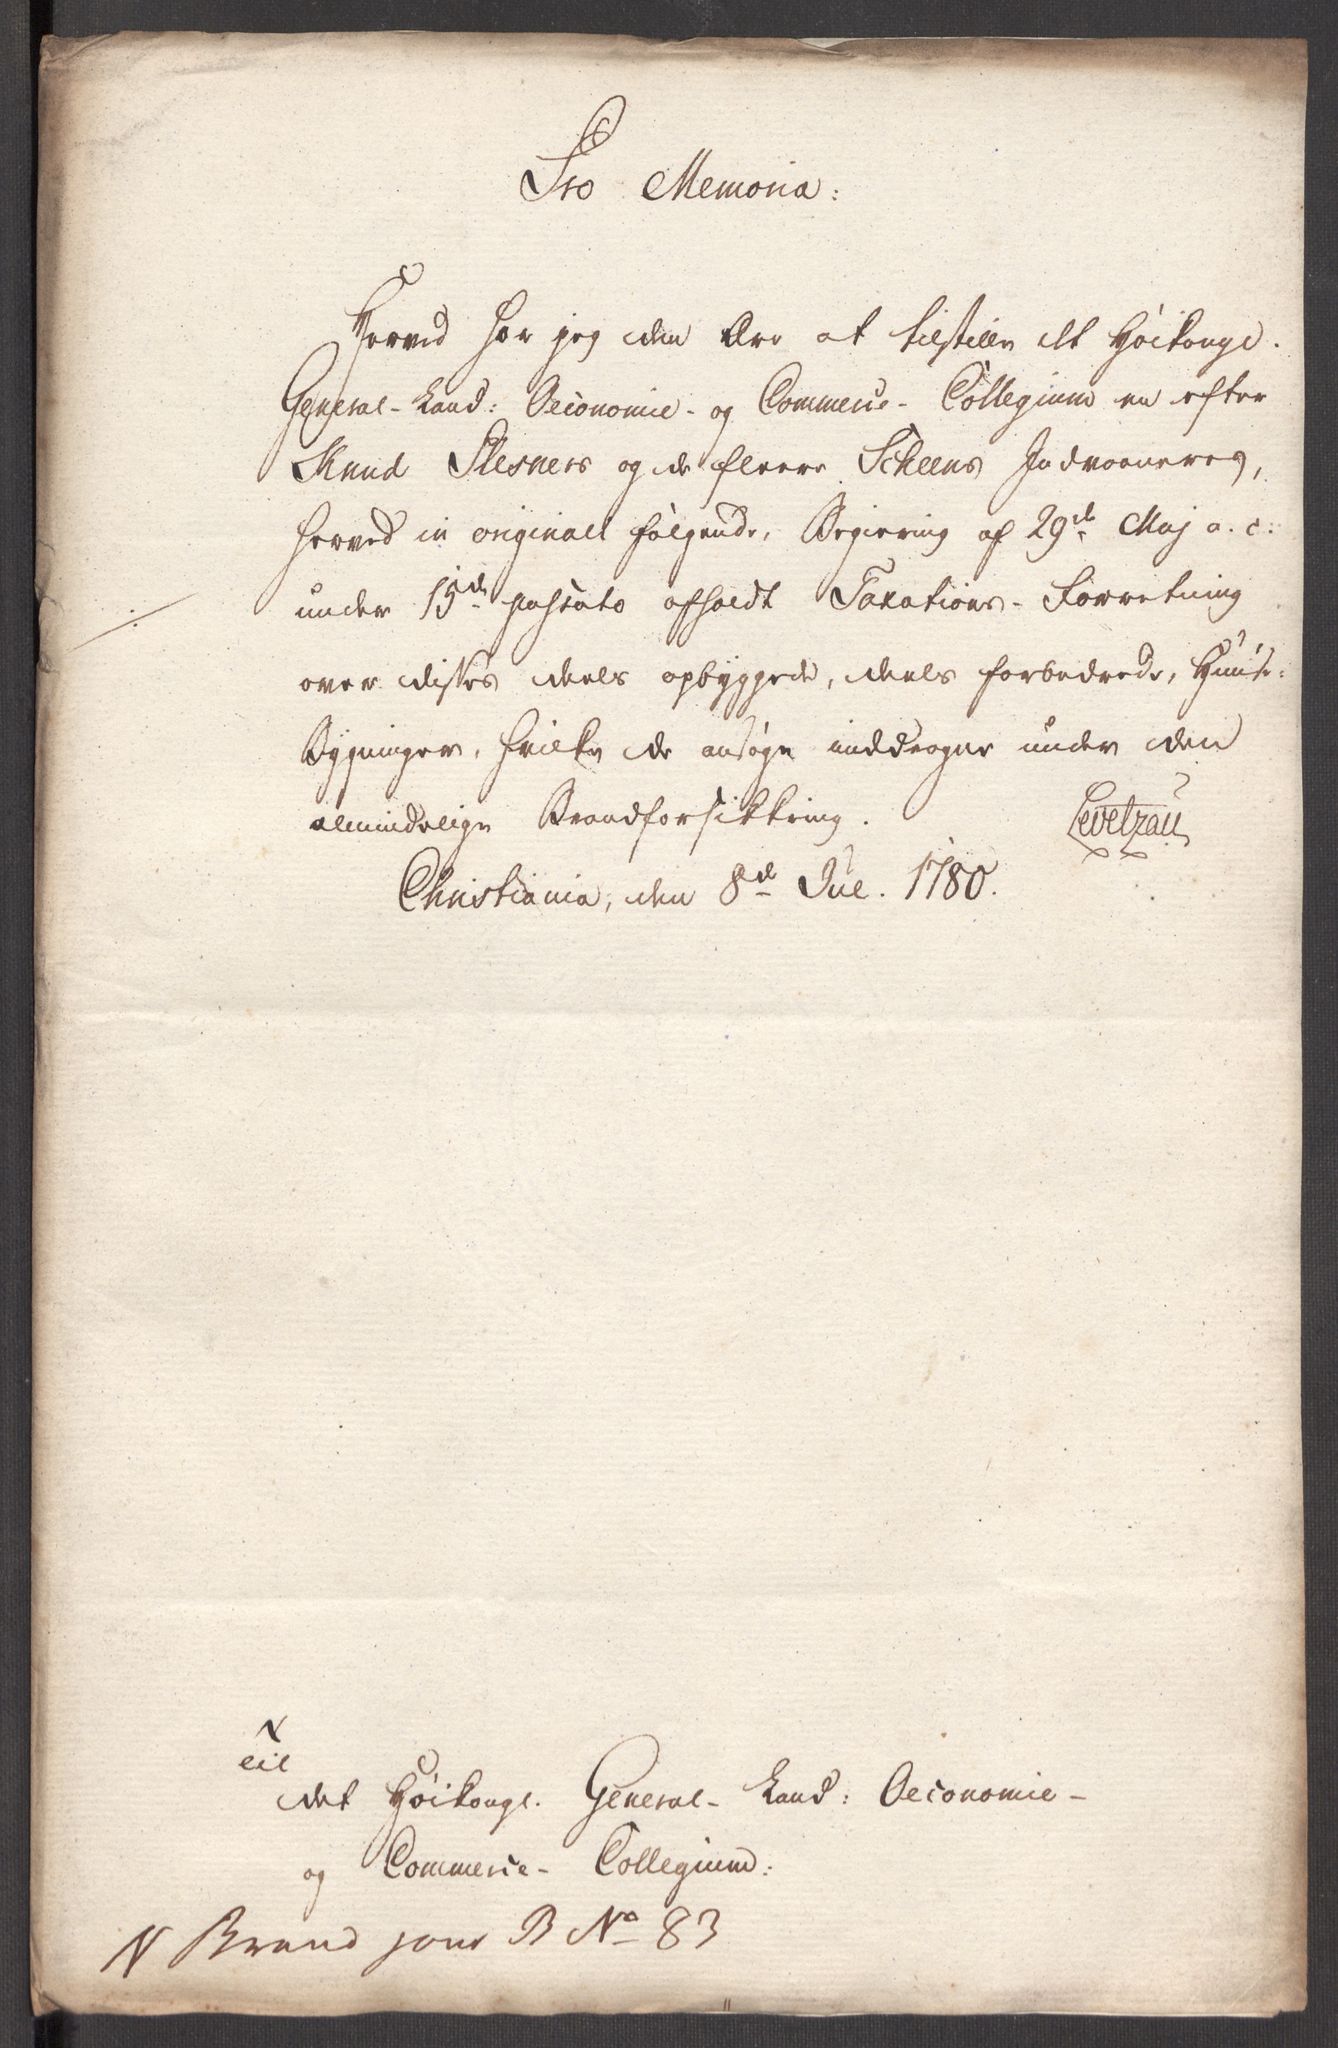 Pro Memoria:
Herved har jeg den Ære at tilstille det Høikongl.
General-Land: Oeconomie- og Commerce- Collegium en efter
Knud Plesners og de fleere Scheens Indvaaneres,
herved in originali følgende, Begiering af 29de Maj a. c:
under 15de passato afholdt Taxations-Forretning
./.
over disses deels opbyggede, deels forbedrede, Huuse-
Bygninger, hvilke de ansøge inddragne under den
almindelige Brandforsikkring.
Levetzau
Christiania, den 8de Jul. 1780.
Til
det Høikongl. General- Land: Oeconomie-
og Commerce- Collegium:
N Brand jour B No 83